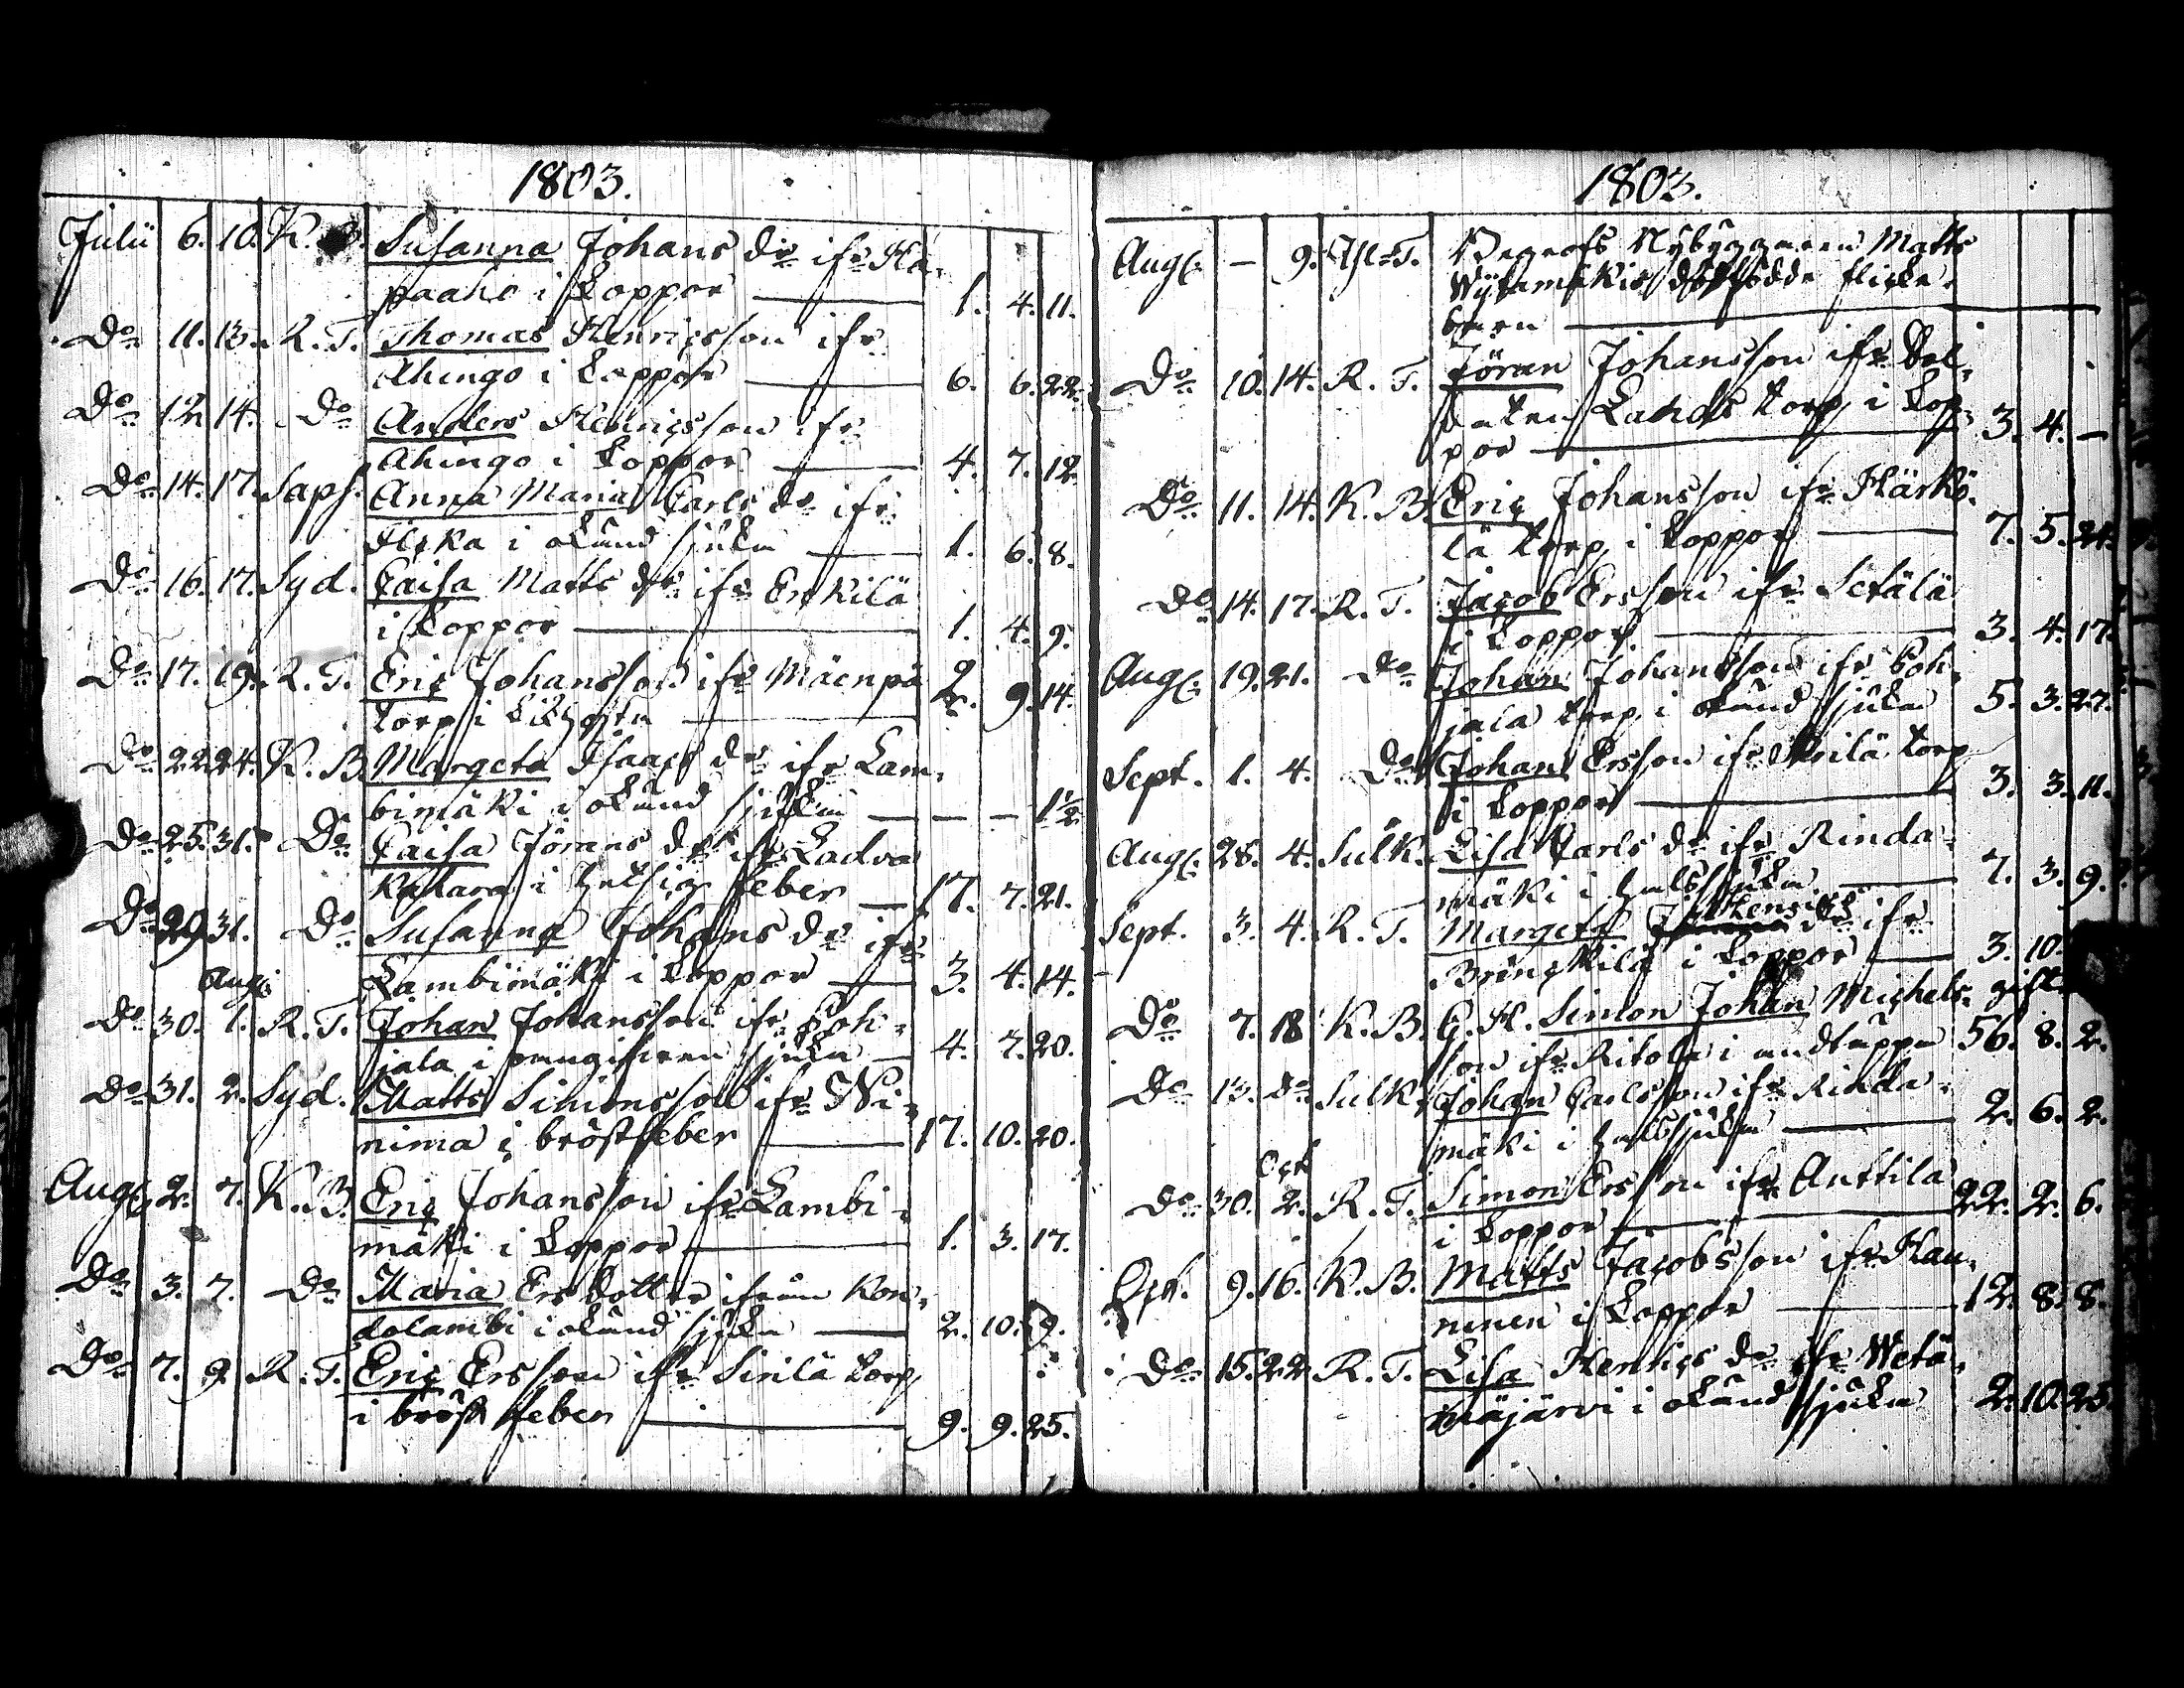 1803.
Julii 6. 10. K. Susanna Johans dr ifr Ha-
paaho i Koppor 1. 4. 11.
Do 11. 13. R. T. Thomas Henricsson ifr
Ahingo i Koppor 6. 6. 22.
Do 12 14. Do Anders Henricsson ifr
Ahingo i Koppor 4. 7. 12.
Do 14. 17. Saph. Anna Maria Carls dr ifr
Ilska i okänd sjuka 1. 6. 8.
Do 16. 17. Syd. Caisa Matts dr ifr Erkilä
i Koppor 1. 4. 9.
Do 17. 19. R. T. Eric Johansson ifr Mäenpä
torp i 2. 9. 14.
Do 22 24. K. B. Margeta Isaacs dr ifr Lam-
bimäki i okänd sjukm — — 1½
Do 25. 31. Do Caisa Jörans dr ifr Ladva
Katara i hetsig feber 17. 7. 21.
Do 29 31. Do Susanna Johans dr ifr
Lambimäki i Koppor 3. 4. 14.
Aug:
Do 30. 1. R. T. Johan Johansson ifr Poh-
jala i sjuka 4. 7. 20.
Do 31. 2. Syd. Matts Simonsson ifr Ni-
nima i bröstfeber 17. 10. 20.
Aug: 2. 7. K. B. Eric Johansson ifr Lambi-
mäki i Koppor 1. 3. 17.
Do 3. 7. Do Maria Ers dotter ifrån Kon-
dolambi i okänd sjuka 2. 10. 9.
Do 7. 9. R. T. Eric Ersson ifr Sirilä torp
i bröst feber 9. 9. 25.
1803.
Aug: — 9. Begrofs Nybyggaren Matts
Wytamäkis dödfödde flicke-
barn
Do 10. 14. R. T. Jöran Johansson ifr Sol-
daten Lahds torp i Kop-
por 3. 4. —
Do 11. 14. K. B. Eric Johansson ifr Härkö-
lä torp i Koppor 7. 5. 21.
Do 14. 17. R. T. Jacob Ersson ifr Setälä
i Koppor 3. 4. 17.
Aug: 19. 21. Do Johan Johansson ifr Poh-
jala torp i okänd sjuka 5. 3. 27.
Sept. 1. 4. Do Johan Ersson ifr torp
i Koppor 3. 3. 11.
Aug: 28. 4. Sulk. Lisa Carls dr ifr Rinda-
mäki i halssjuka 7. 3. 9.
Sept. 3. 4. R. T. Margeta Henrics dr ifr
Bringkilä i Koppor 3. 10.
Do 7. 18 K. B. G. H. Simon Johan Michels- gift
son ifr Ritola i andtäppa 56. 8. 2.
Do 13. Do Sulk. Johan Carlsson ifr Rinda-
mäki i halssjuka 2. 6. 2.
Oct
Do 30. 2. R. T. Simon Ersson ifr Anttila
i Koppor 22. 2. 6.
Oct. 9. 16. K. B. Matts Jacobsson ifr Hau-
ninen i Koppor 12. 8. 8.
Do 15. 22 R. T. Lisa Henrics dr ifr Wetä-
mäjärvi i okänd sjuka 2. 10. 25.